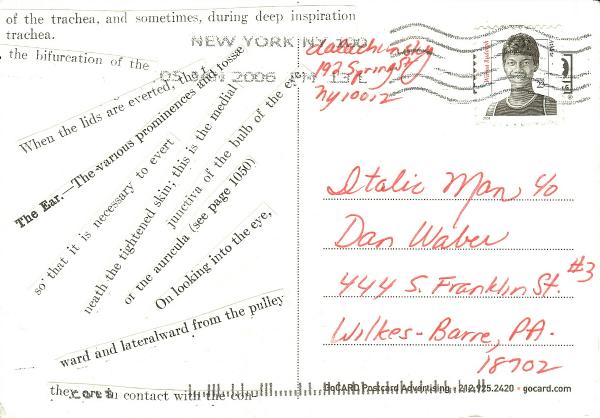 of the trachea, and sometimes, during deep inspiration
trachea.
the bifurcation of the
When the lids are everted, the
The Ear.—The various prominences and fosse
so that it is necessary to evert
neath the tightened skin; this is the medial
junctiva of the bulb of the eye,
or the auricula (see page 1050)
On looking into the eye,
ward and lateralward from the pulley
they are in contact with the con-
NEW YORK NY 100
2006 PM
192 Spring St
NY 10012
Italic Man c/o
Dan Waber
444 S. Franklin St. #3
Wilkes-Barre, PA.
18702
GoCARD Postcard Advertising • 212.925.2420 • gocard.com